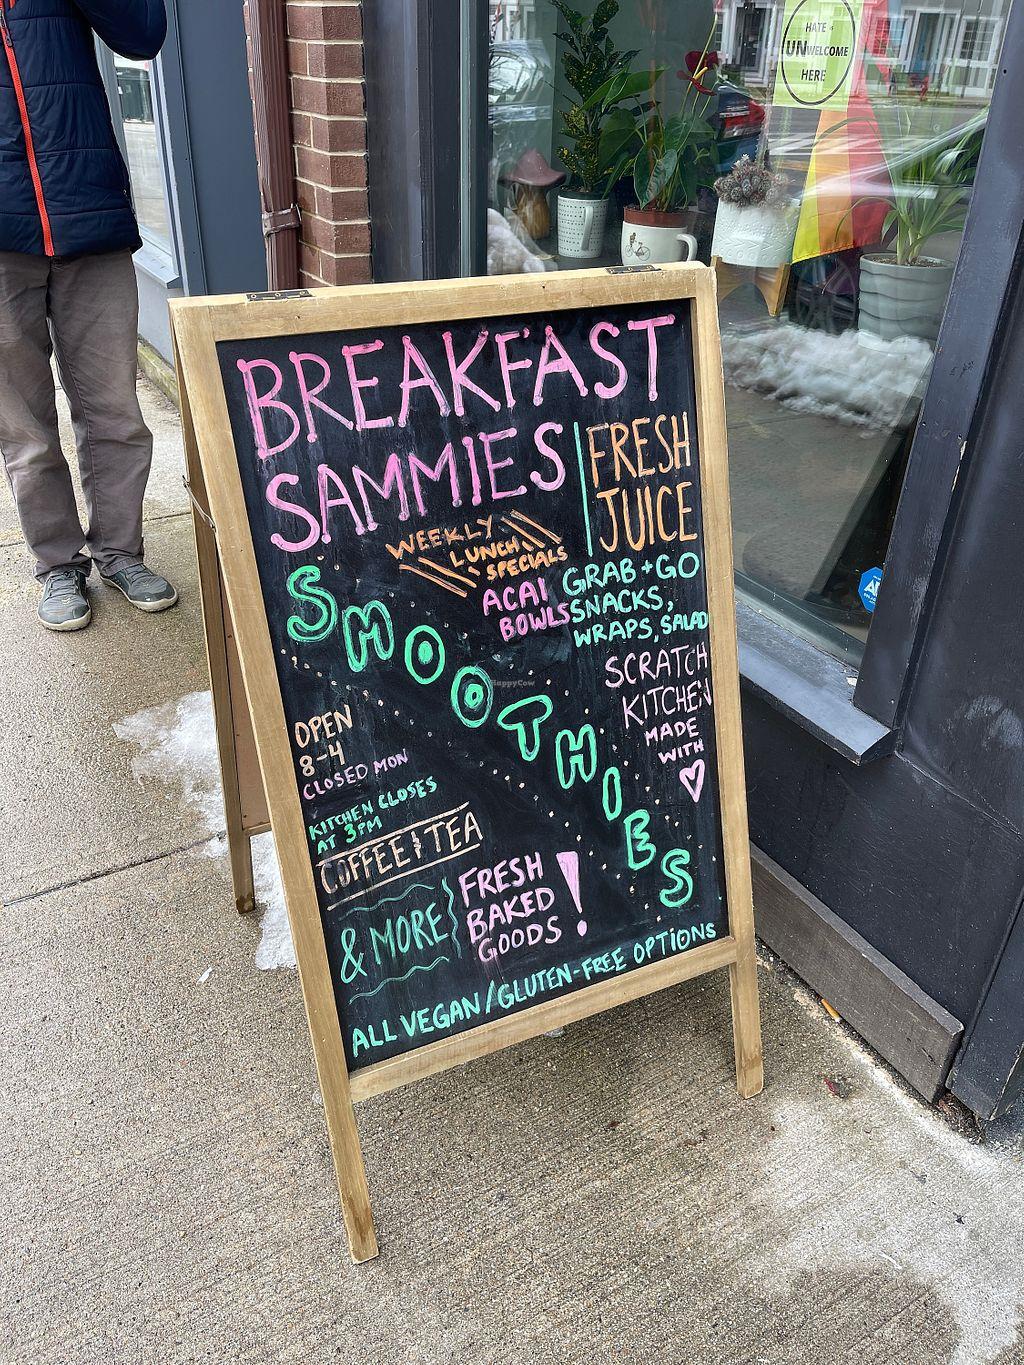 HATE
UNWELCOME
HERE
BREAKFAST
SAMMIES
FRESH
JUICE
WEEKLY
LUNCH
SPECIALS
ACAI
BOWLS
GRAB + GO
SNACKS,
WRAPS, SALAD
SMOOTHIES
SCRATCH
KITCHEN
MADE
WITH
OPEN
8-4
CLOSED MON
KITCHEN CLOSES
AT 3PM
COFFEE & TEA
& MORE
FRESH
BAKED
GOODS!
ALL VEGAN/GLUTEN-FREE OPTIONS
HappyCow